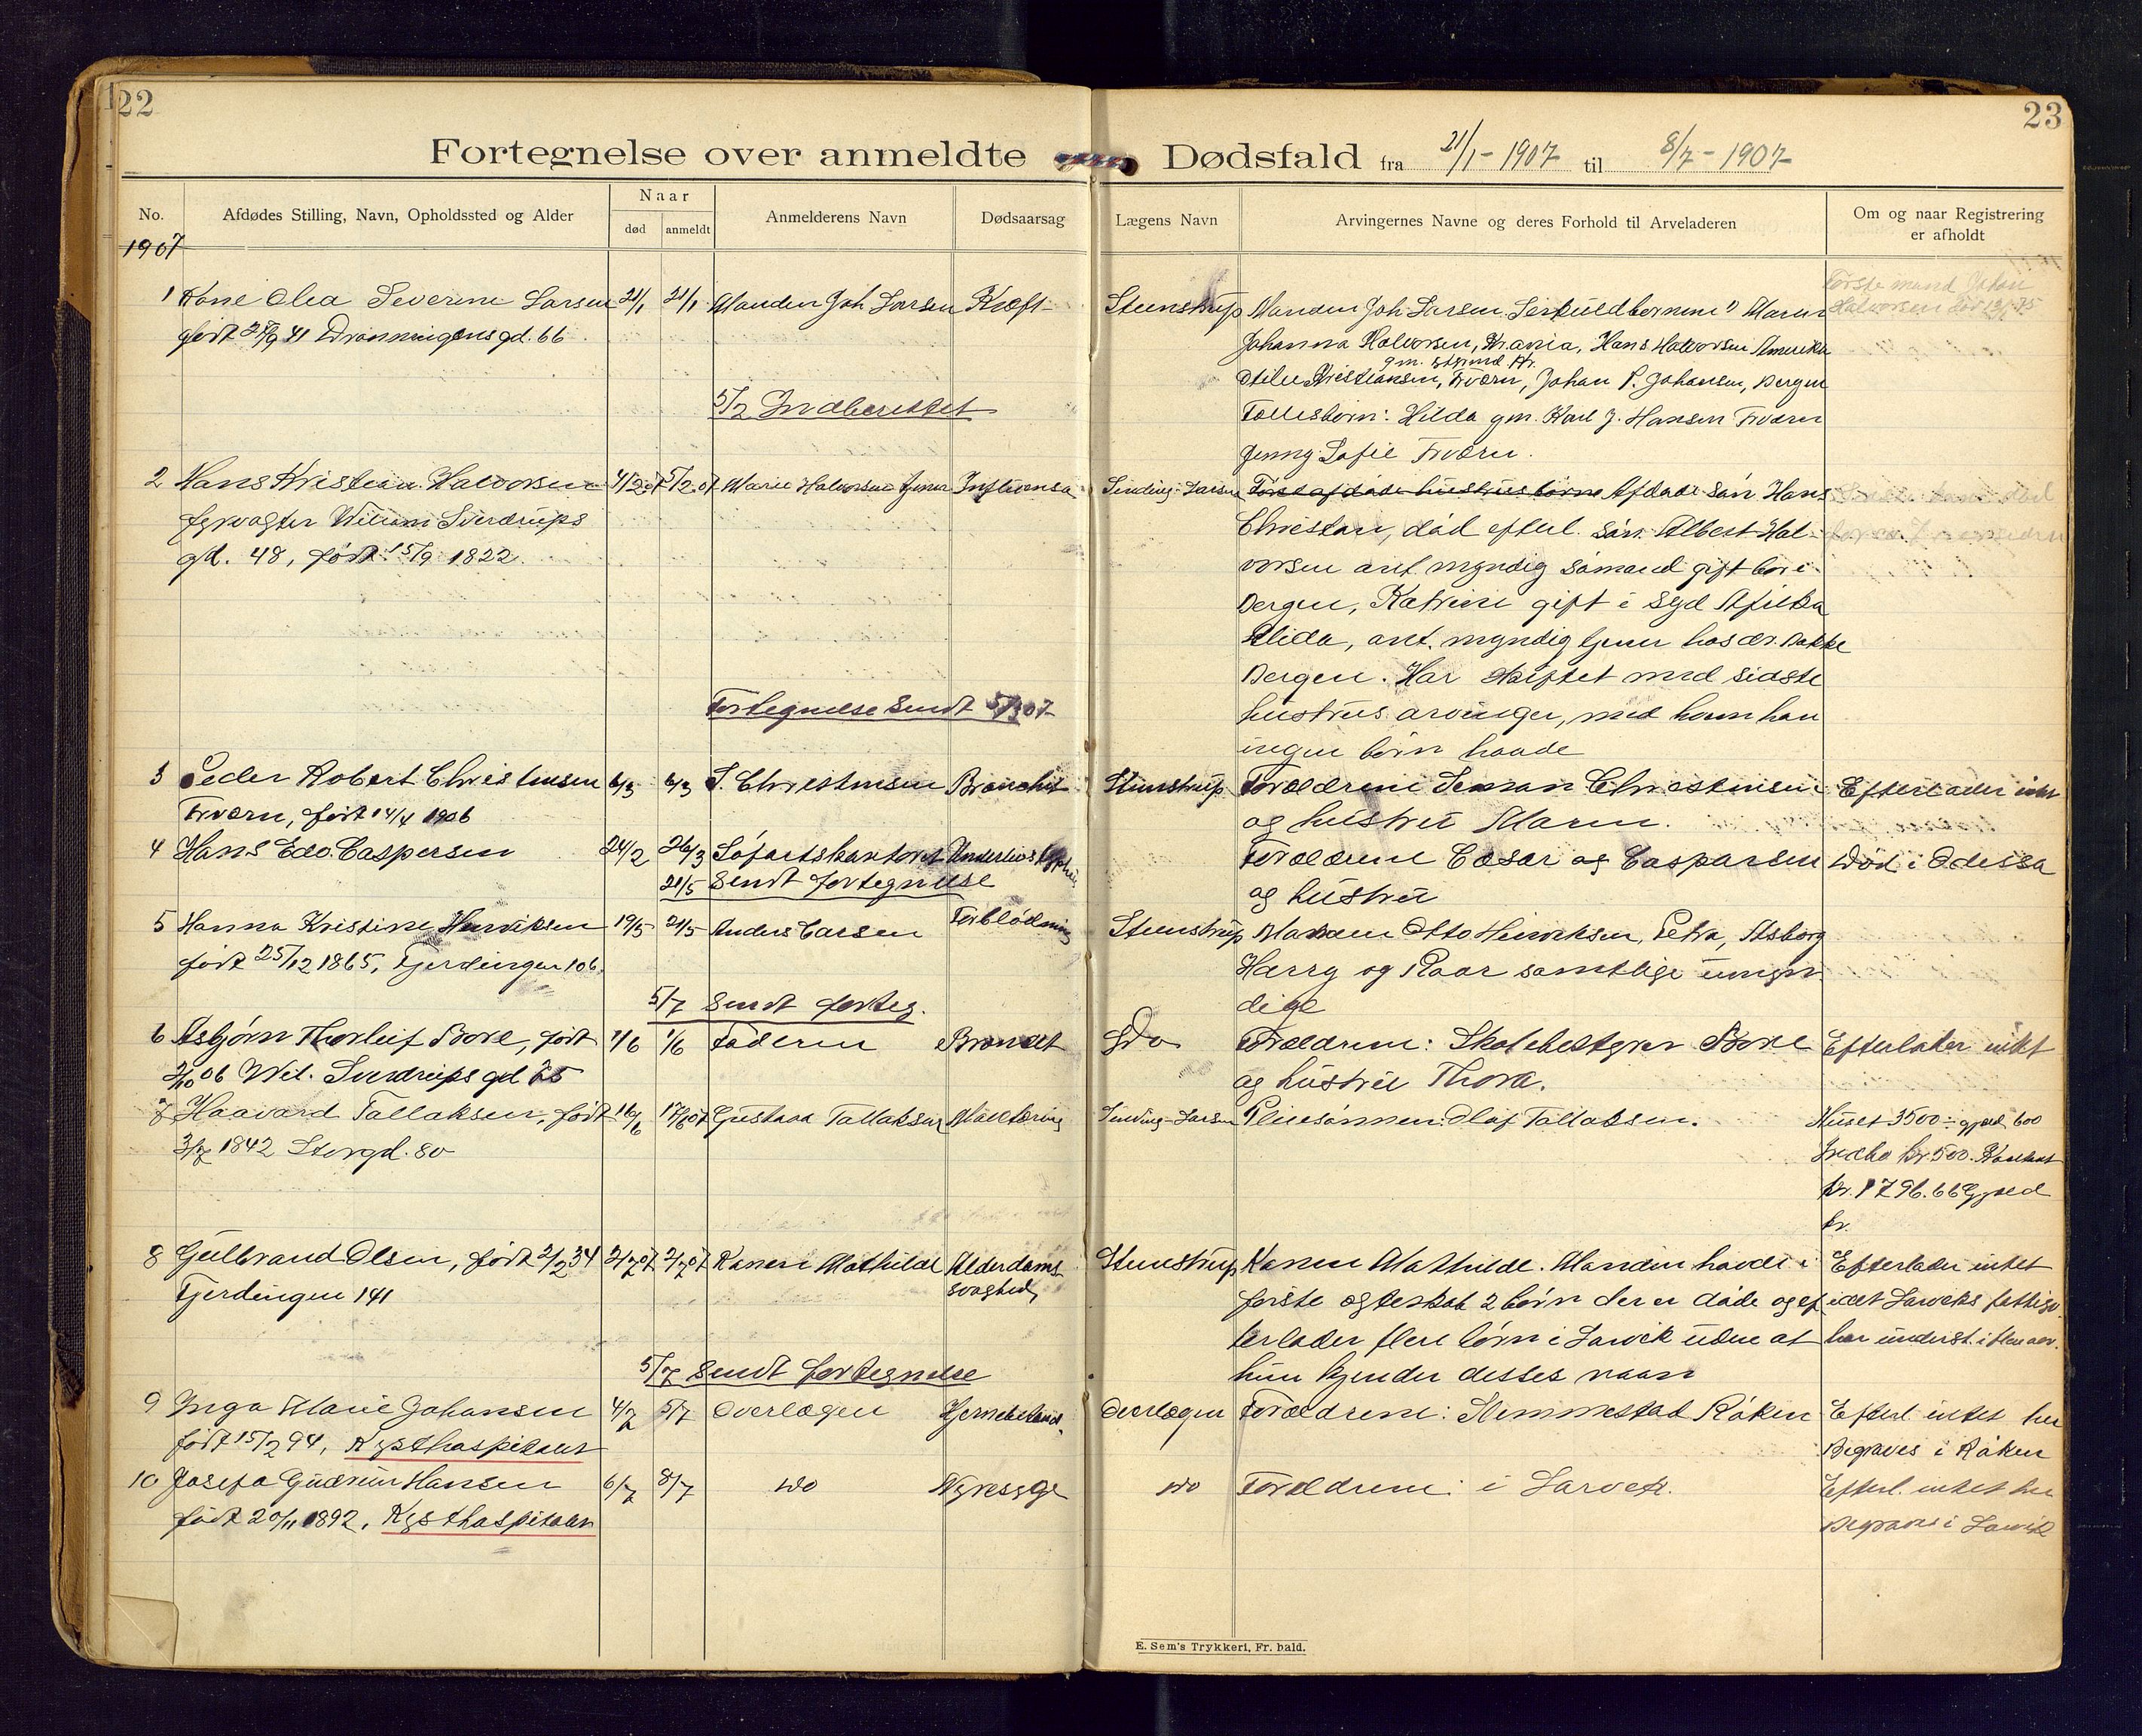 22
Fortegnelse over anmeldte
No.
Afdødes Stilling, Navn, Opholdssted og Alder
Naar
død
anmeldt
Anmelderens Navn
Dødsaarsag
1907
1 Kone Olea Severine Larsen 21/1 21/1 Manden Joh Larsen Kræft
født 41 Dronningensgd. 66
5/2 Indberettet
2 Hans Kristian Halvorsen 4/2 07 5/2 07 Marie Halvorsen Influensa
fyrvogter Wilum Sverdrups
gd. 48, født 15/9 1822.
Fortegnelse sendt
3 Peder Robert Christensen 6/3 6/3 S. Christensen Bronchit
Tværn, født 14/4 1906
4 Hans Edv. Caspersen 24/2 26/3 Søfartskontoret Underlivstyphus
21/5 Sendt fortegnelse
5 Hanna Kristine Henriksen 19/5 21/5 Anders Larsen Forblødning
født 25/12 1865, Tjerdingen 106.
5/7 Sendt forteg.
6 Asbjørn Thorleif Bore, født 1/6 1/6 Faderen
2/10 06 Wil. Sverdrups gd 25
7 Haavard Tallaksen, født 16/6 17/6 07 Gustava Tallaksen
1842 Storgd. 80
8 Gulbrand Olsen, født 2/2 34 2/7 07 2/7 07 Konen Mathilde Alderdoms
Tjerdingen 141 svaghed,
5/7 Sendt fortegnelse
9 Inga Marie Johansen 4/7 5/7 Overlægen
født 15/2 94, Kysthospitalet
10 Josefa Gudrun Hansen 6/7 8/7 do Nyresyge
født 20/11 1892, Kysthospitalet
23
Dødsfald fra 21/1 - 1907 til 8/7 - 1907
Lægens Navn
Arvingernes Navne og deres Forhold til Arveladeren
Om og naar Registrering
er afholdt
Første mand Johan
Halvorsen død
Steenstrup Manden Joh Larsen. Særkuldbørnene Maren
Johanna Halvorsen, Maria, Hans Halvorsen Amerika
Kristiansen, Tværn, Johan P. Johansen, Bergen
Fællesbørn: Hilda gm. Karl J. Hansen Tværn
Jenny Sofie Tværn.
Sinding-Larsen Først afdøde hustrus børn Afdøde søn Hans
Christian, død efterl. søn Albert Hal-
vorsen ant. myndig sømand gift bor i
Bergen, Katrine gift i Syd Afrika
Alida, ant. myndig tjener hos dr. Bakke
Bergen. Har skiftet med sidste
hustrus arvinger, med hvem han
ingen børn havde
Steenstrup Forældrene Seman Christensen Efterlader intet
og hustru Maren.
Forældrene Cæsar og Caspersen Død i Odessa
og hustru
Steenstrup Manden Otto Henriksen, Petra, Asborg
Harry og Roar samtlige umyn-
dige
Do Forældrene: Skolebestyrer Bore Efterlader intet
og hustru Thora.
Sinding-Larsen Pleiesønnen Olaf Tallaksen. Huset 3500 ÷ gjæld 600
Indbo kr. 500.
kr. 1796.66 Gjæld
kr.
Steenstrup Konen Mathilde. Manden havde i Efterlader intet
første ægteskab 2 børn der er døde og ef- idet Larviks fattigv.
terlader flere børn i Larvik uden at har underst. i flere aar.
hun kjender disses navn
Overlægen Forældrene: Slemmestad Røken Efterl. intet her
Begraves i Røken
do Forældrene: i Larvik. Efterl. intet her
Begraves i Larvik
E. Sem's Trykkeri, Fr. hald.